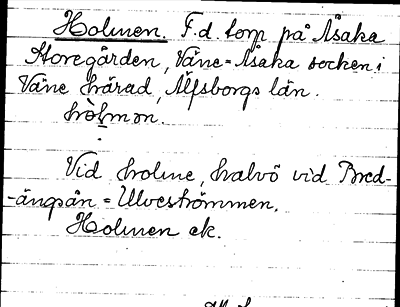 Holmen. F.d. torp på Åsaka
Storegården, Väne-Åsaka socken i
Väne härad, Älfsborgs län.
hòlmɔn.
Vid holme, halvö vid Bred-
-ängsån = Ulveströmmen.
Holmen ek.